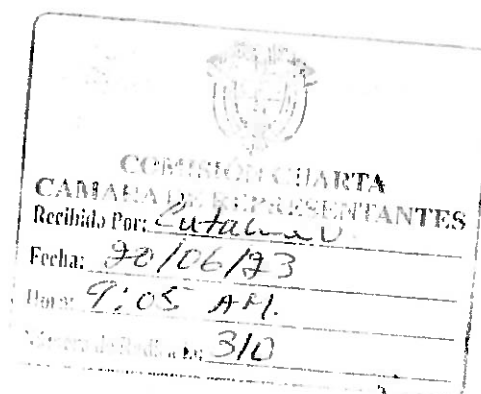 COMISIÓN CUARTA
CAMARA DE REPRESENTANTES
Recibido Por: Catalina V
Fecha: 20/06/23
Hora: 9:05 AM.
Número de Radicación: 310